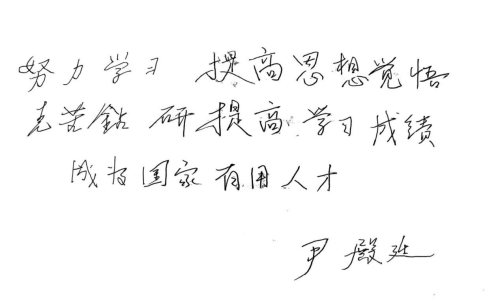 努力学习 提高思想觉悟
克苦鉆 研提高学习成绩
成为国家有用人才
尹殿廷